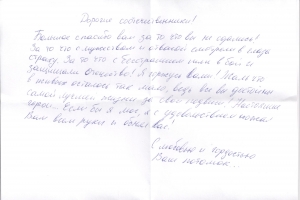 Дорогие соотечественники!
Большое спасибо вам за то что вы не сдались!
За то что с мужеством и отвагой смотрели в глаза
страху. За то что с бесстрашием шли в бой и
защищали Отечество! Я горжусь вами! Жаль что
в живых осталось так мало, ведь вы все достойны
самой лучшей жизни за свой подвиг! Настоящие
герои. Если бы я мог я с удовольствием
Вам всем руки и обнял вас.
С любовью и гордостью
Ваш потомок.